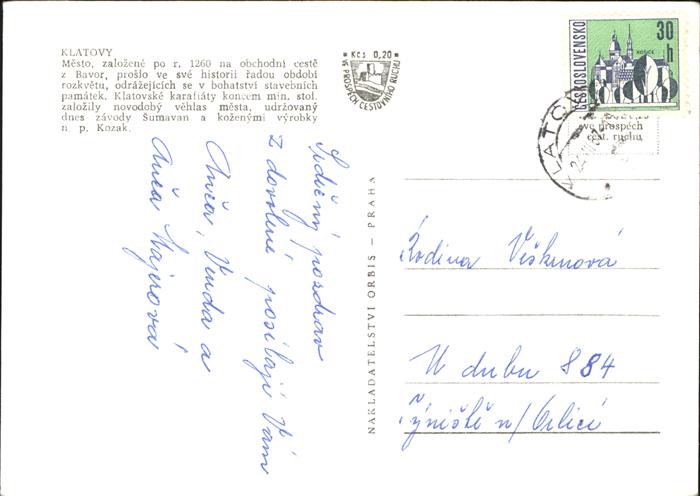 KLATOVY
Město, založené po r. 1260 na obchodní cestě
z Bavor, prošlo ve své historii řadou období
rozkvětu, odrážejících se v bohatství stavebních
památek. Klatovské karafiáty koncem min. stol.
založily novodobý věhlas města, udržovaný
dnes závody Šumavan a koženými výrobky
n. p. Kozak.
Kčs 0,20
VE PROSPĚCH CESTOVNÍHO RUCHU
ČESKOSLOVENSKO
30
h
KOŠICE
KLATOV
ve prospěch
cest. ruchu
Srdečný pozdrav
z dovolené posílají Vám
Anča, Venda a
Anča Majerová
NAKLADATELSTVÍ ORBIS — PRAHA
Rodina
U dubu 884
Týniště n/Orlicí